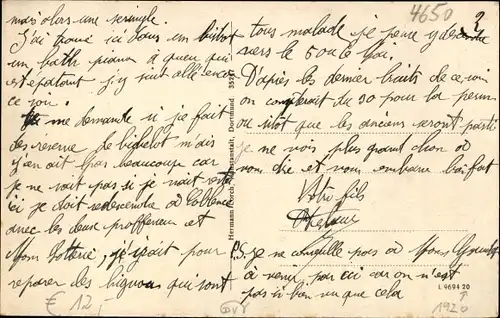 mais alors une seringle.
J'ai trouvé ici dans un bistrot
un path piano à queu qui
est épatant j'y suis allé encore
ce soir.
me demande si j'ai fait
des reserve de bibelot mais
j'en ait pas beaucoup car
je ne sait pas si je vait rester
ici je doit redescendre à Coblence
avec les deux proffesseur et
Mons Lotterie, j'ai pour
reparer les bignous qui sont
4650
tous malade je pense y descendre
vers le 5 ou le
D'apres les dernier bruits de ce soir
on compterait du 30 pour la perm
ou plutot que les anciens seront parti
Je ne vois plus grand chose à
vous dire et vous embrasse bien fort
Votre fils
PS. Je ne conseille pas à Mons
à venir par ici car on n'est
pas si bien vu que cela
Hermann Lorch, Kunstanstalt, Dortmund
L 9694 20
€ 12,-
1926